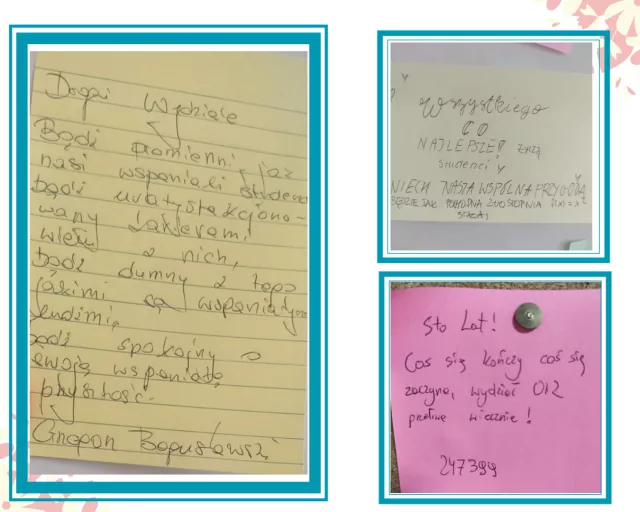 Drogi Wydziale
Bądź promienni jak
nasi wspaniali studenci
bądź usatysfakcjono-
wany sukcesami
wielu z nich,
bądź dumny z tego
jakimi są wspaniałymi
ludźmi,
bądź spokojny o
swoją wspaniałą
przyszłość.
Bogusławski
Wszystkiego
CO
NAJLEPSZE życzą
studenci
NIECH NASZA WSPÓLNA PRZYGODA
BĘDZIE JAK POCHODNA
STAŁA
Sto Lat!
Coś się kończy coś się
zaczyna, wydział
przetrwa wiecznie!
247399